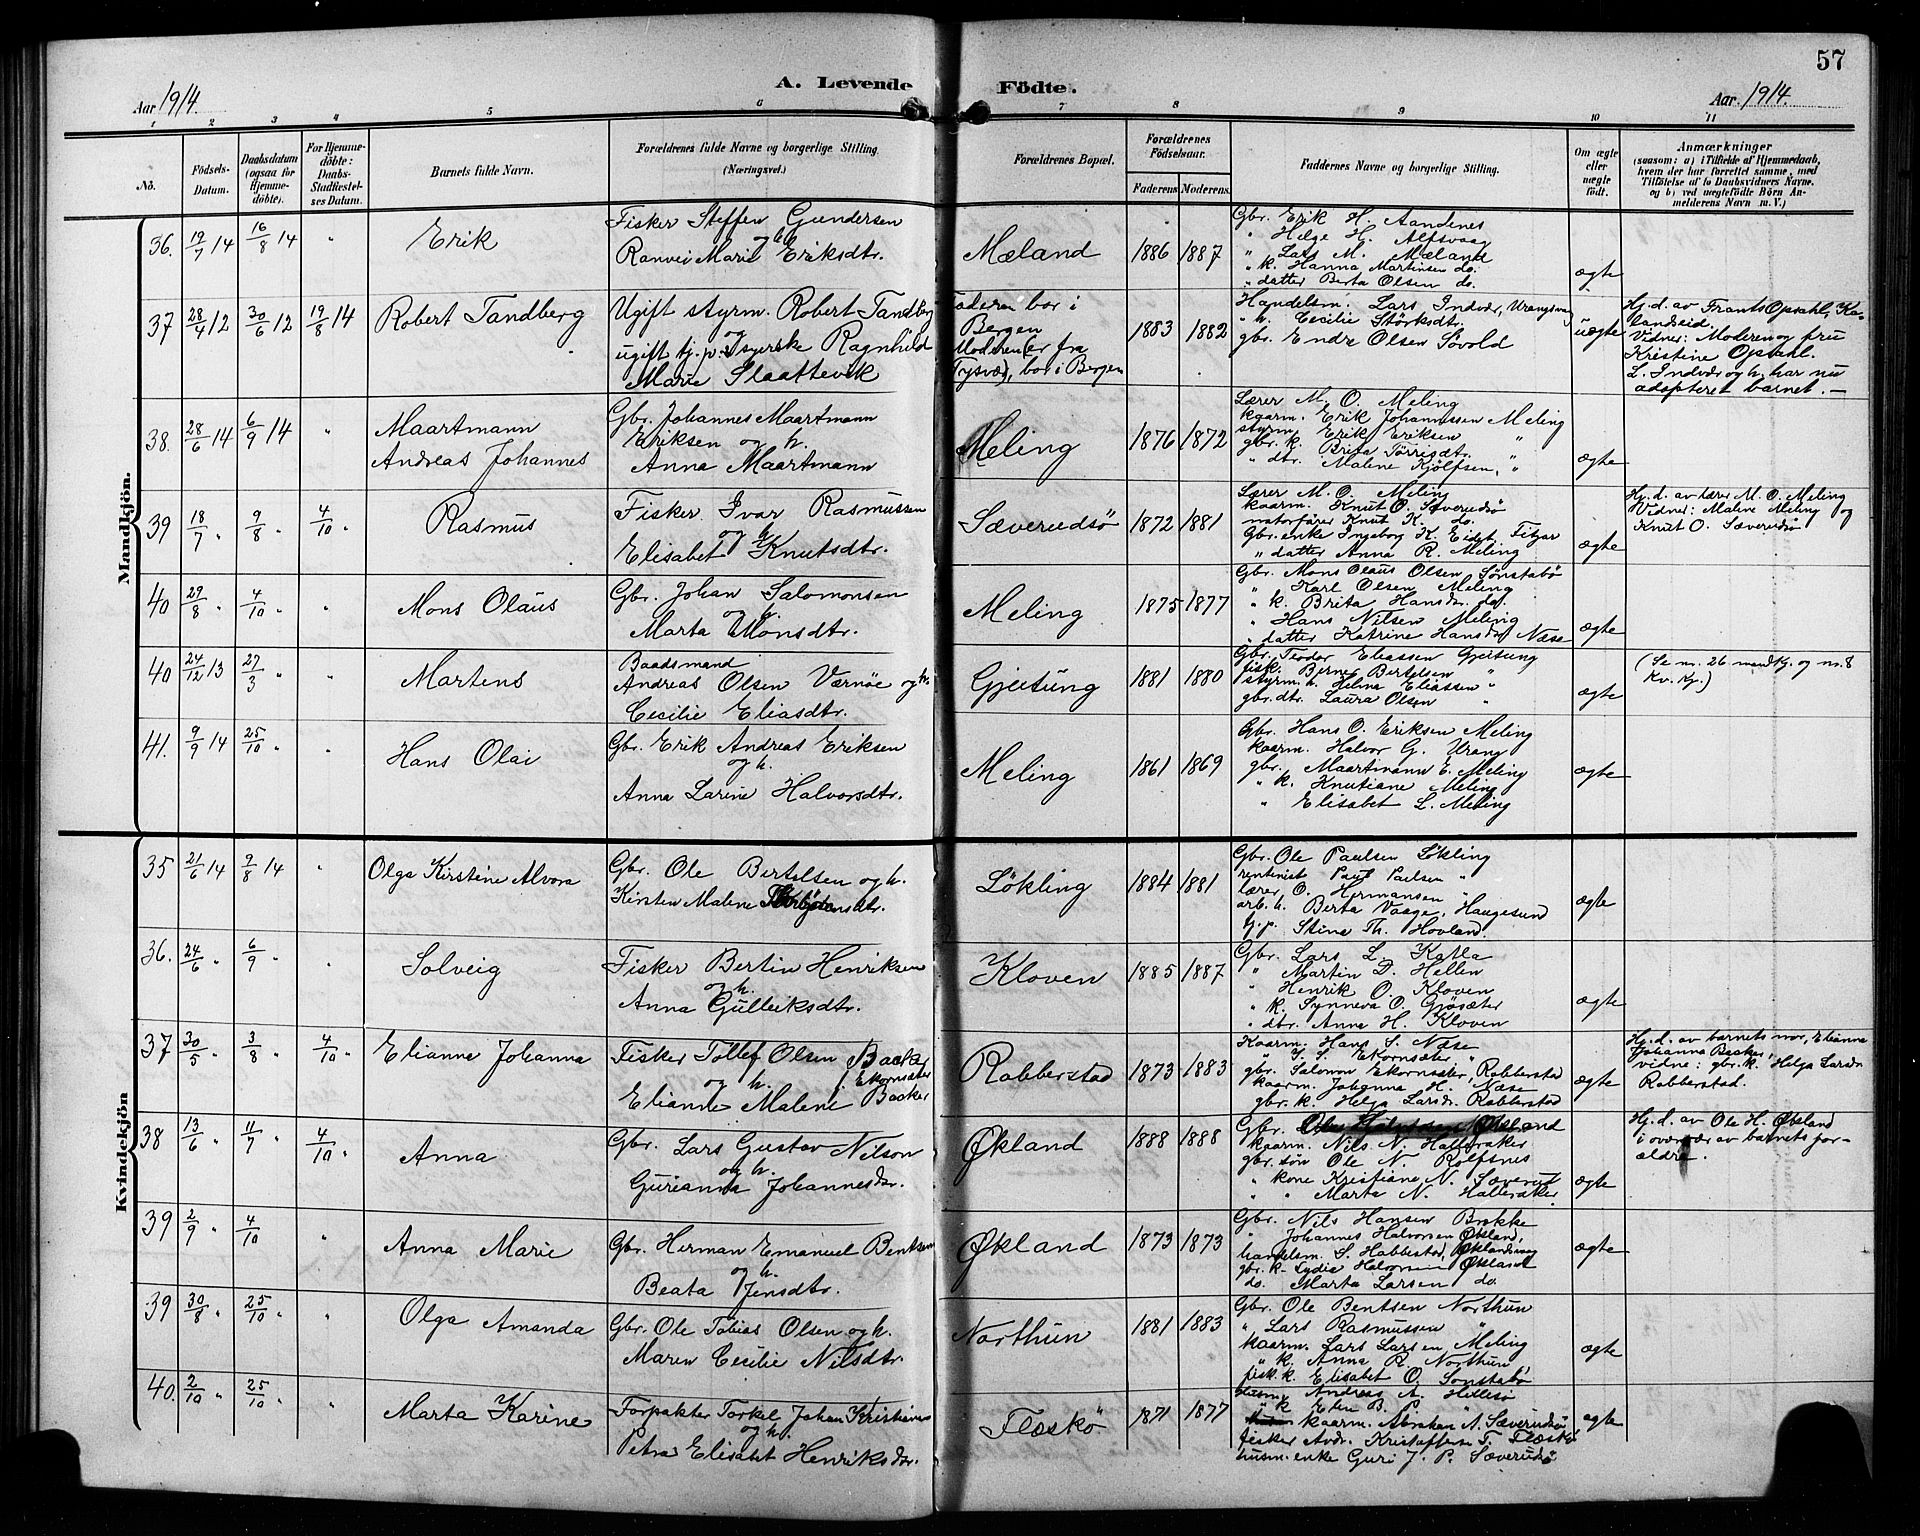 57
A. Levende Födte.
Aar 1914. Aar 1914.
1 2 3 4 5 6 7 8 9 10 11
No.
Födsels-Datum.
Daabsdatum (ogsaa for Hjemmedöbte).
For Hjemmedöbte: Daabs-Stadfestelses Datum.
Barnets fulde Navn.
Forældrenes fulde Navne og borgerlige Stilling. (Næringsvei.)
Forældrenes Bopæl.
Forældrenes Födselsaar.
Faderens. Moderens.
Faddernes Navne og borgerlige Stilling.
Om ægte eller uægte födt.
Anmærkninger
(saasom: a) i Tilfælde af Hjemmedaab, hvem der har forrettet samme, med Tilföielse af to Daabsvidners Navne. og b) ved uægtefödte Börn Anmelderens Navn m. V.)
Mandkjön.
36. 19/7 14 16/8 14 " Erik
Fisker Steffen Gundersen
og h.
Ranvei Marie Eriksdtr.
Mæland 1886 1887
Gbr. Erik H. Aandenes
" Helge H. Alfsvaag
" Lars M. Mæland
" k. Hanna Martinsen do.
" datter Berta Olsen do.
ægte
37 28/4 12 30/6 12 19/8 14 Robert Tandberg
Ugift styrm. Robert Tandberg
og
ugift tj.p. Syerske Ragnhild
Marie Slaattevik
Faderen bor i
Bergen
Moderen (er fra
Tysvær), bor i Bergen
1883 1882
Handelsm. Lars Indvær, Urangsvaag
" h. Cecilie Størksdtr.
gbr. Endre Olsen Søvold
uægte
Hj.d. av Frants Opsahl, Kalandseid.
Vidner: Moderen og fru
Kristine Opsahl.
L. Indvær og h. har nu
adopteret barnet. —
38. 28/6 14 6/9 14 " Maartmann
Andreas Johannes
Gbr. Johannes Maartmann
Eriksen og h.
Anna Maartmann
Meling 1876 1872
Lærer M. O. Meling
kaarm. Erik Johannessen Meling
styrm. Erik Eriksen "
gbr. k. Brita Tørresdtr. "
" dtr. Malene Kjølfsen, "
ægte
39 18/7 " 9/8 " 4/10 " Rasmus
Fisker Ivar Rasmussen
og h.
Elisabet Knutsdtr.
Sæverudsø 1872 1881
Lærer M. O. Meling
kaarm. Knut O. Sæverudsø
motorfører Knut K. do.
Gbr. enke Ingeborg K. Eidet, Fitjar
" datter Anna R. Meling
ægte
Hj.d. av lærer M. O. Meling
Vidner: Malne Meling og
Knut O. Sæverudsø
40 29/8 " 4/10 " " Mons Olaus
Gbr. Johan Salomonsen
og h.
Marta Monsdtr.
Meling 1875 1877
Gbr. Mons Olaus Olsen Sønstabø
" Karl Olsen Meling
" k. Brita Hansdr. do.
" Hans Nilsen Meling
" datter Katrine Hansdr Næse
ægte
40 24/12 13 27/3 " " Martens
Baadsmand
Andreas Olsen Værnøe og h.
Cecilie Eliasdtr.
Gjeitung 1881 1880
Gbr. Teodor Eliassen Gjeitung
fisk. Berner Bertelsen "
styrm. h. Helma Eliassen "
gbr. dtr. Laura Olsen "
ægte
(Se nr. 26 mandkj. og nr. 8
Kv. kj.)
41. 9/9 14 25/10 " " Hans Olai
Gbr. Erik Andreas Eriksen
og h.
Anna Larine Halvorsdtr.
Meling 1861 1869
Gbr. Hans O. Eriksen Meling
kaarm. Halvor G. Urang
gbr. Maartmann E. Meling
" k. Knutiane Meling
" Elisabet L. Meling
ægte
Kvindekjön
35 21/6 14 9/8 14 " Olga Kirstine Alvora
Gbr. Ole Bertelsen og h.
Kirsten Malene Torbjørnsdtr.
Løkling 1884 1881
Gbr. Ole Paulsen Løkling
rentenist Paul Paulsen "
lærer O. Hermansen "
arb. h. Berta Vaage, Haugesund
tj.p. Stina Th. Hovland.
ægte
36. 24/6 " 6/9 " " Solveig
Fisker Bertin Henriksen
og h.
Anna Gulleiksdtr.
Kloven 1885 1887
Gbr. Lars L. Katla
" Martin D. Hellen
" Henrik O. Kloven
" k. Synneva O. Gjøsæter
" dtr. Anna H. Kloven
ægte
37 30/5 " 3/8 " 4/10 " Elianne Johanna
Fisker Tollef Olsen Baaker
og h. f. Ekornsæter
Elianne Malene Baaker
Rabberstad 1873 1883
Kaarm. Hans S. Næse
" S. S. Ekornsæter, "
gbr. Salomon Ekornsæter, Robberstad
kaarm. Johanna H. Næse
gbr. k. Helga Larsdr. Robberstad
ægte
Hj.d. av barnets mor, Elianna
Johanna Baaker,
vidne: gbr. k. Helga Larsdr
Robberstad.
38 13/6 " 11/7 " 4/10 " Anna
Gbr. Lars Gustav Nilson
og h.
Gurianna Johannesdr.
Økland 1888 1888
Gbr. Økland
kaarm. Nils N. Halleraker
gbr. søn Ole N. Rolfsnes
" kone Kristiane N. Sæverud
" " Marta N. Halleraker
ægte
Hj.d. av Ole H. Økland
i overvær av barnets forældre.
39 2/9 " 4/10 " Anna Marie
Gbr. Herman Emanuel Bentsen
og h.
Beata Jensdtr.
Økland 1873 1873
Gbr. Nils Hansen Brekke
" Johannes Halvorsen Økland,
handelsm. S. Habbestad, Øklandsvaag
gbr. k. Lydia Halvorsen Økland
do. Marta Larsen do.
ægte
39 30/8 " 25/10 " " Olga Amanda
Gbr. Ole Tobias Olsen og h.
Maren Cecilie Nilsdtr.
Northun 1881 1883
Gbr. Ole Bentsen Northun
" Lars Rasmussen "
kaarm. Lars Larsen Meling
" k. Anna R. Northun
fisk. k. Elisabet O. Sønstabø
ægte
40. 2/10 " 25/10 " " Marta Karine
Forpakter Torkel Johan Kristiansen
og h.
Petra Elisabet Henriksdr.
Flæskø 1871 1877
Husm. Andreas A. Hellesø
" k. Elen B. P. "
kaarm. Abraham A. Sæverudsø
fisker Andr. Kristoffersen T. Flæskø
husm. enke Guri J. P. Sæverudsø
ægte